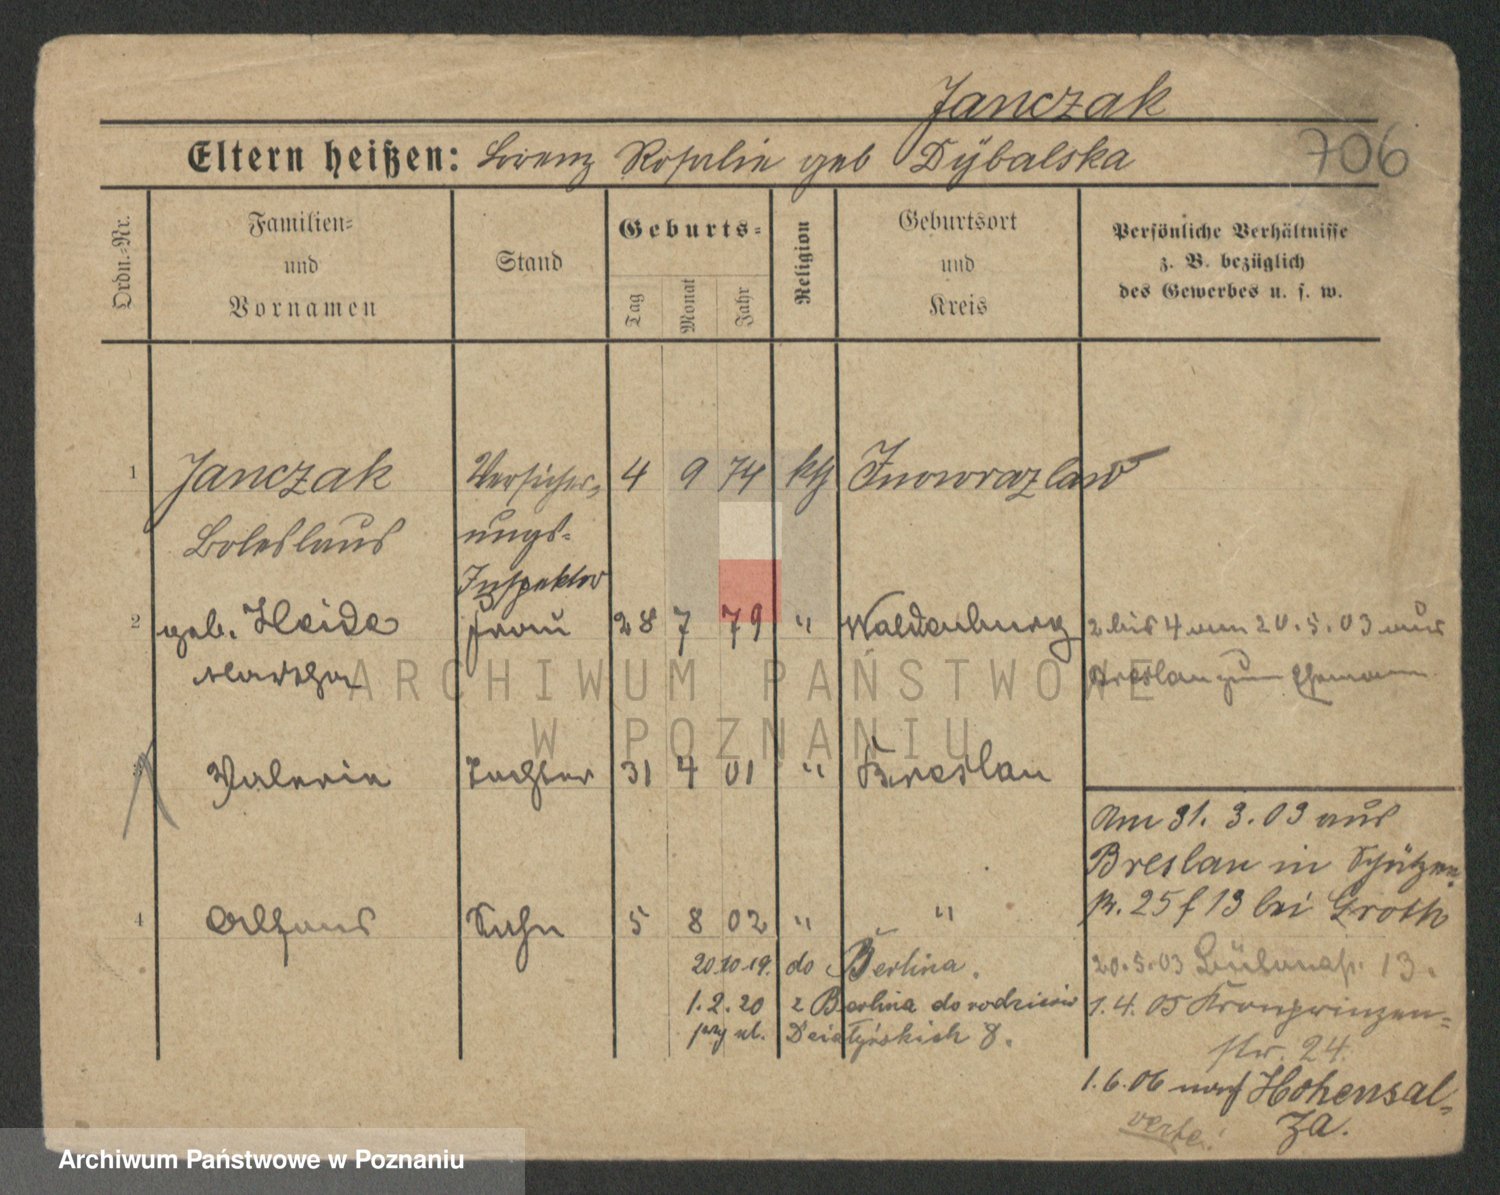 Janczak
Eltern heißen: Lorenz Rosalie geb Dÿbalska
706
Ordn.-Nr.
Familien-
und
Vornamen
Stand
Geburts-
Tag
Monat
Jahr
Religion
Geburtsort
und
Kreis
Persönliche Verhältnisse
z. B. bezüglich
des Gewerbes u. s. w.
1 Janczak Versicher- 4 9 74 kth Inowrazlaw
Boleslaus ungs-
Inspektor
2 geb. Heide Frau 28 7 79 " Waldenburg 2 bis 4 am 20.5.03 aus
Martha Breslau zum Ehemann
3 Valerie Tochter 31 4 01 " Breslau
Am 31. 3. 03 aus
Breslau in Schützen-
str. 25 f 13 bei Groth
4 Alfons Sohn 5 8 02 " "
20.10.19. do Berlina.
20.5.03 13.
1.2.20 z Berlina do rodziców
1.4.05 Kronprinzen-
przy ul. Działyńskich 8.
str. 24.
1.6.06 nach Hohensal-
za.
verte!
ARCHIWUM PAŃSTWOWE
W POZNANIU
Archiwum Państwowe w Poznaniu